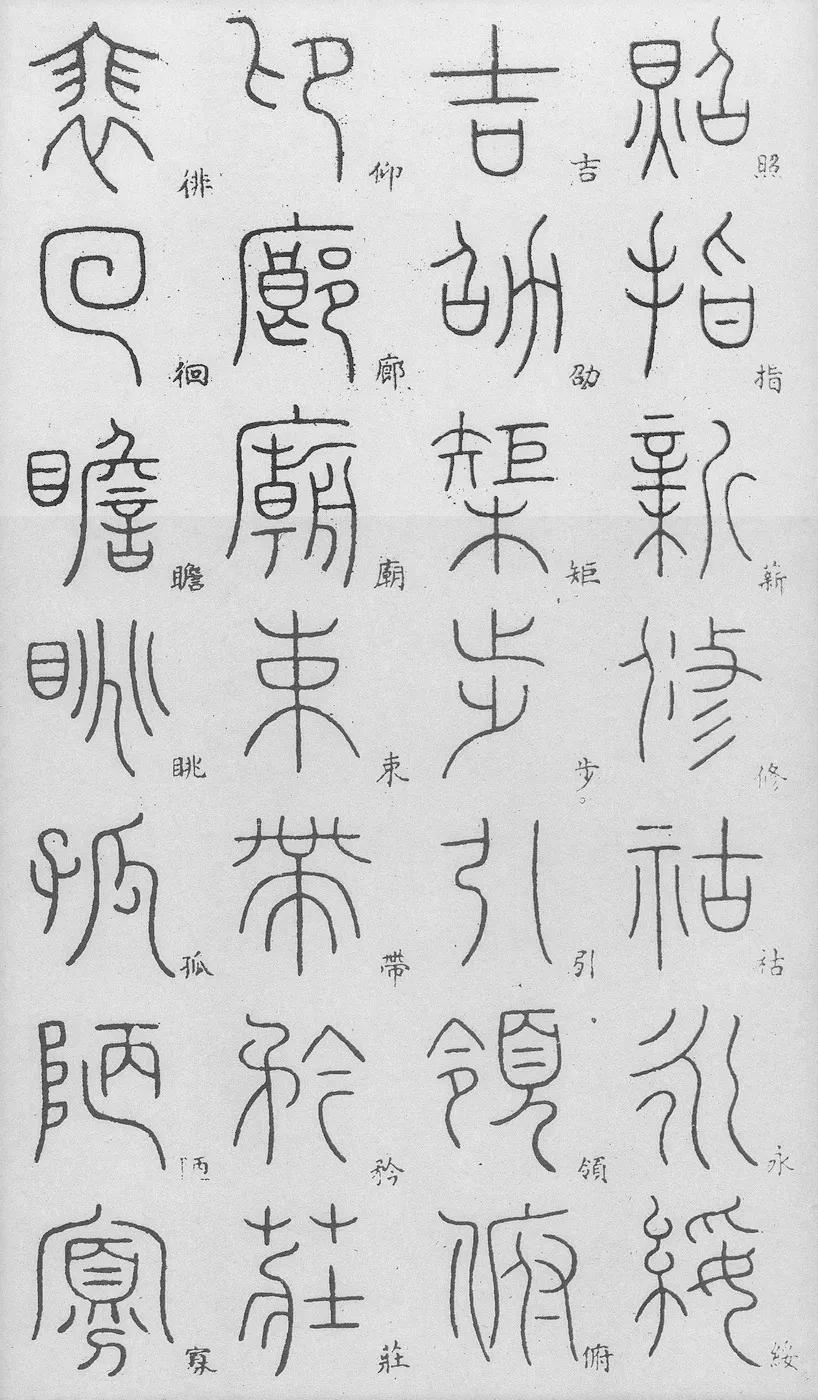 照指薪修祜永綏
吉劭矩步。引領俯
仰廊廟束帶矜莊
徘徊瞻眺孤陋寡